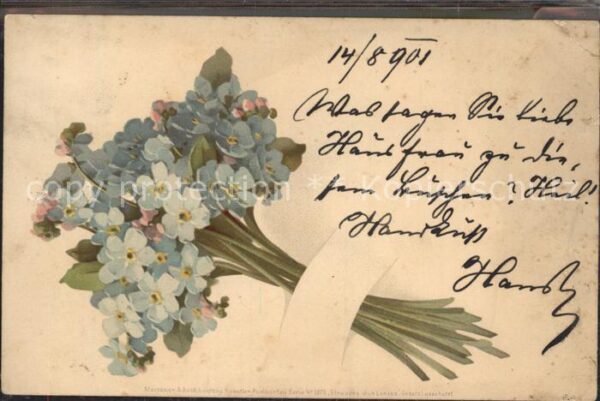 14/8 901
Was sagen Sie liebe
Hausfrau zu die-
sem Buschen? Heil!
Handkuß
Hans
copy protection
Kopierschutz
Meissner & Buch, Leipzig Künstler-Postkarten Serie Nº